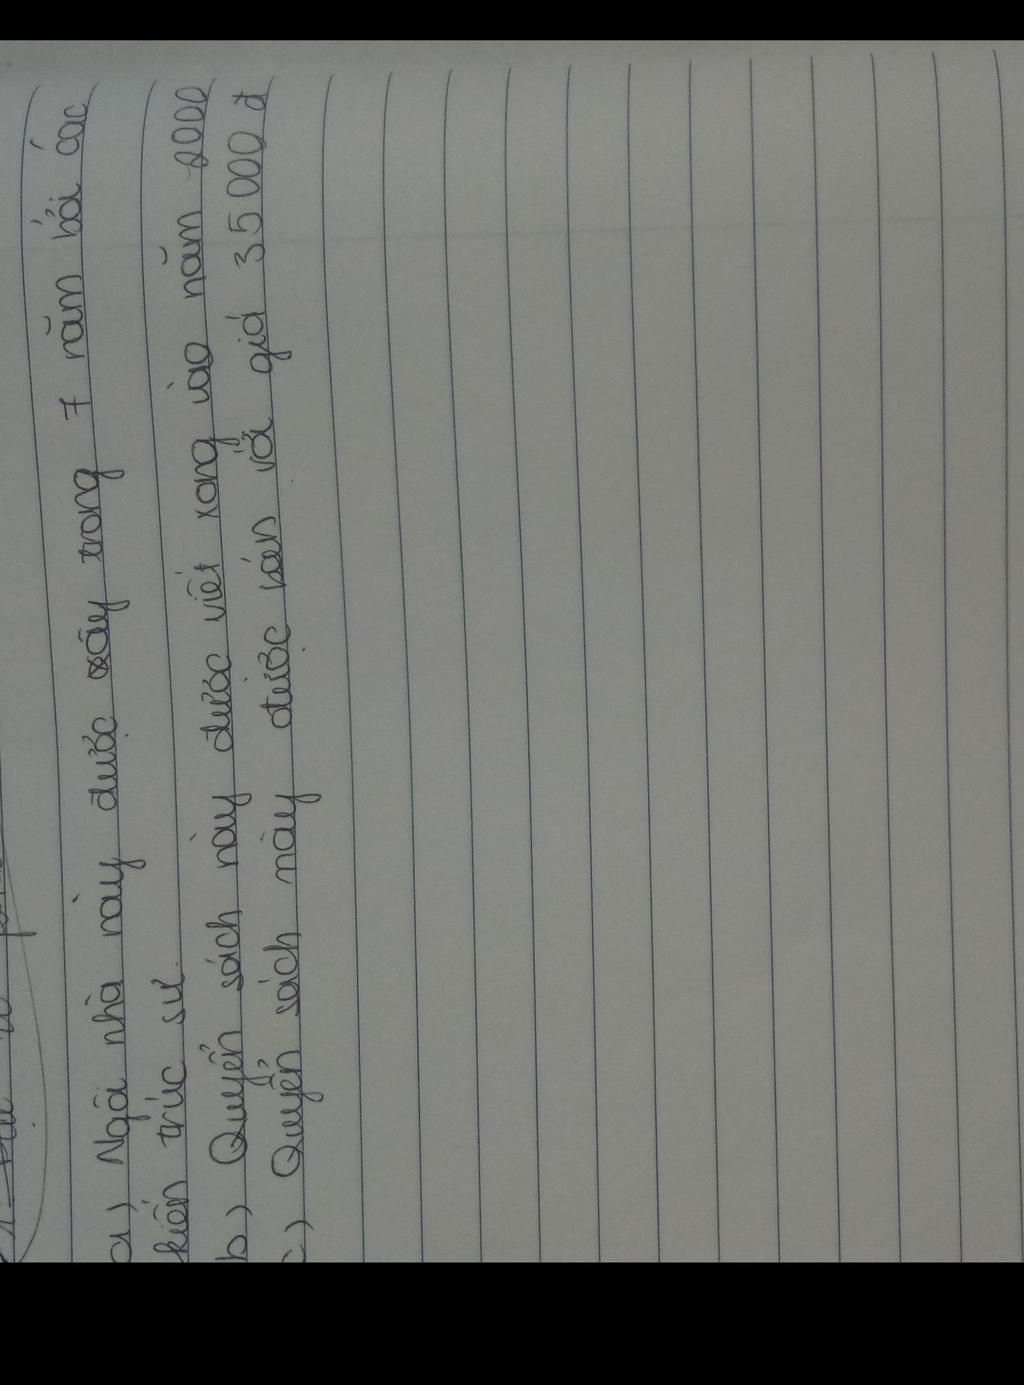 a) Ngôi nhà này được xây trong 7 năm bởi các
kiến trúc sư.
b) Quyển sách này được viết xong vào năm 2000
c) Quyển sách này được bán với giá 35 000 đ